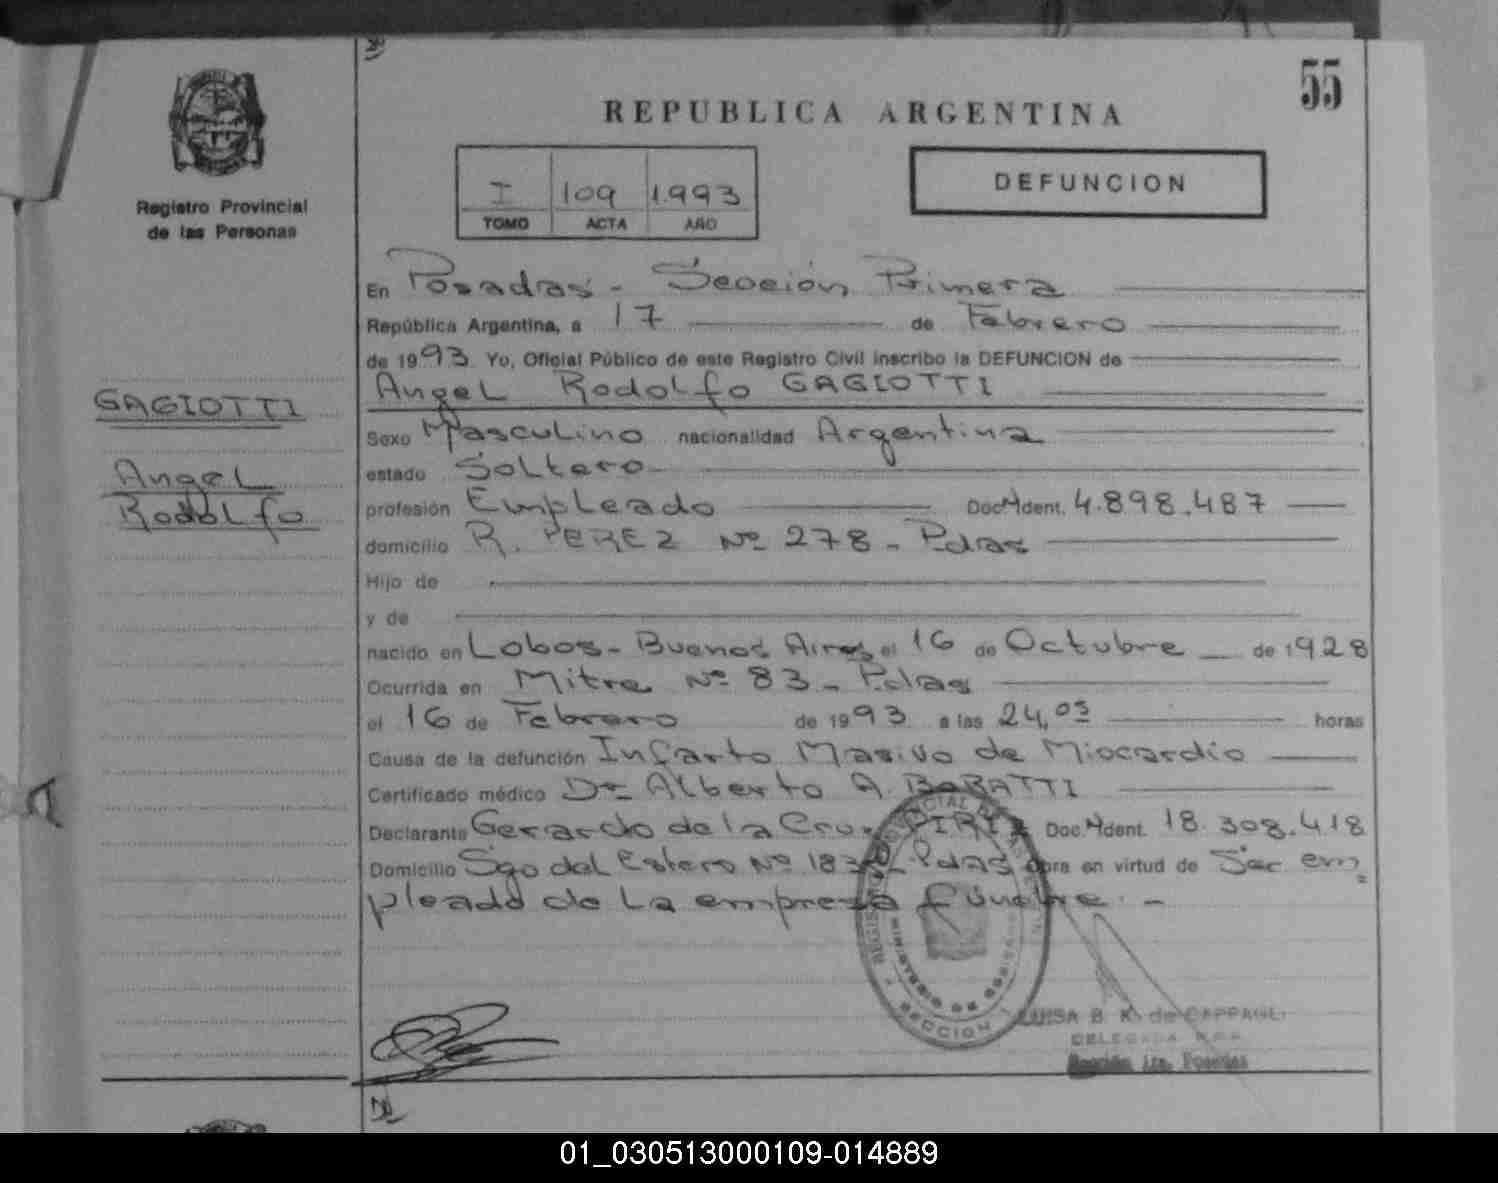 55
REPUBLICA ARGENTINA
Registro Provincial
de las Personas
I 109 1.993
TOMO ACTA AÑO
DEFUNCION
GAGIOTTI
Angel
Rodolfo
En Posadas - Sección Primera
República Argentina, a 17 de Febrero
de 1993 Yo, Oficial Público de este Registro Civil inscribo la DEFUNCION de
Angel Rodolfo GAGIOTTI
Sexo Masculino nacionalidad Argentina
estado Soltero
profesión Empleado Doc. Ident. 4.898.487
domicilio R. PEREZ Nº 278 - Pdas
Hijo de
y de
nacido en Lobos - Buenos Aires el 16 de Octubre de 1928
Ocurrida en Mitre Nº 83 - Pdas
el 16 de Febrero de 1993 a las 24,05 horas
Causa de la defunción Infarto Masivo de Miocardio
Certificado médico Dr Alberto A. BARATTI
Declarante Gerardo de la Cruz PIRIZ Doc. Ident. 18.308.418
Domicilio Sgo del Estero Nº 183 - Pdas obra en virtud de Ser em=
pleado de la empresa fúnebre. -
MINISTERIO DE
SECCION 1
LUISA B. K. de CAPPAGLI
DELEGADA
Sección 1ra. Posadas
01_030513000109-014889